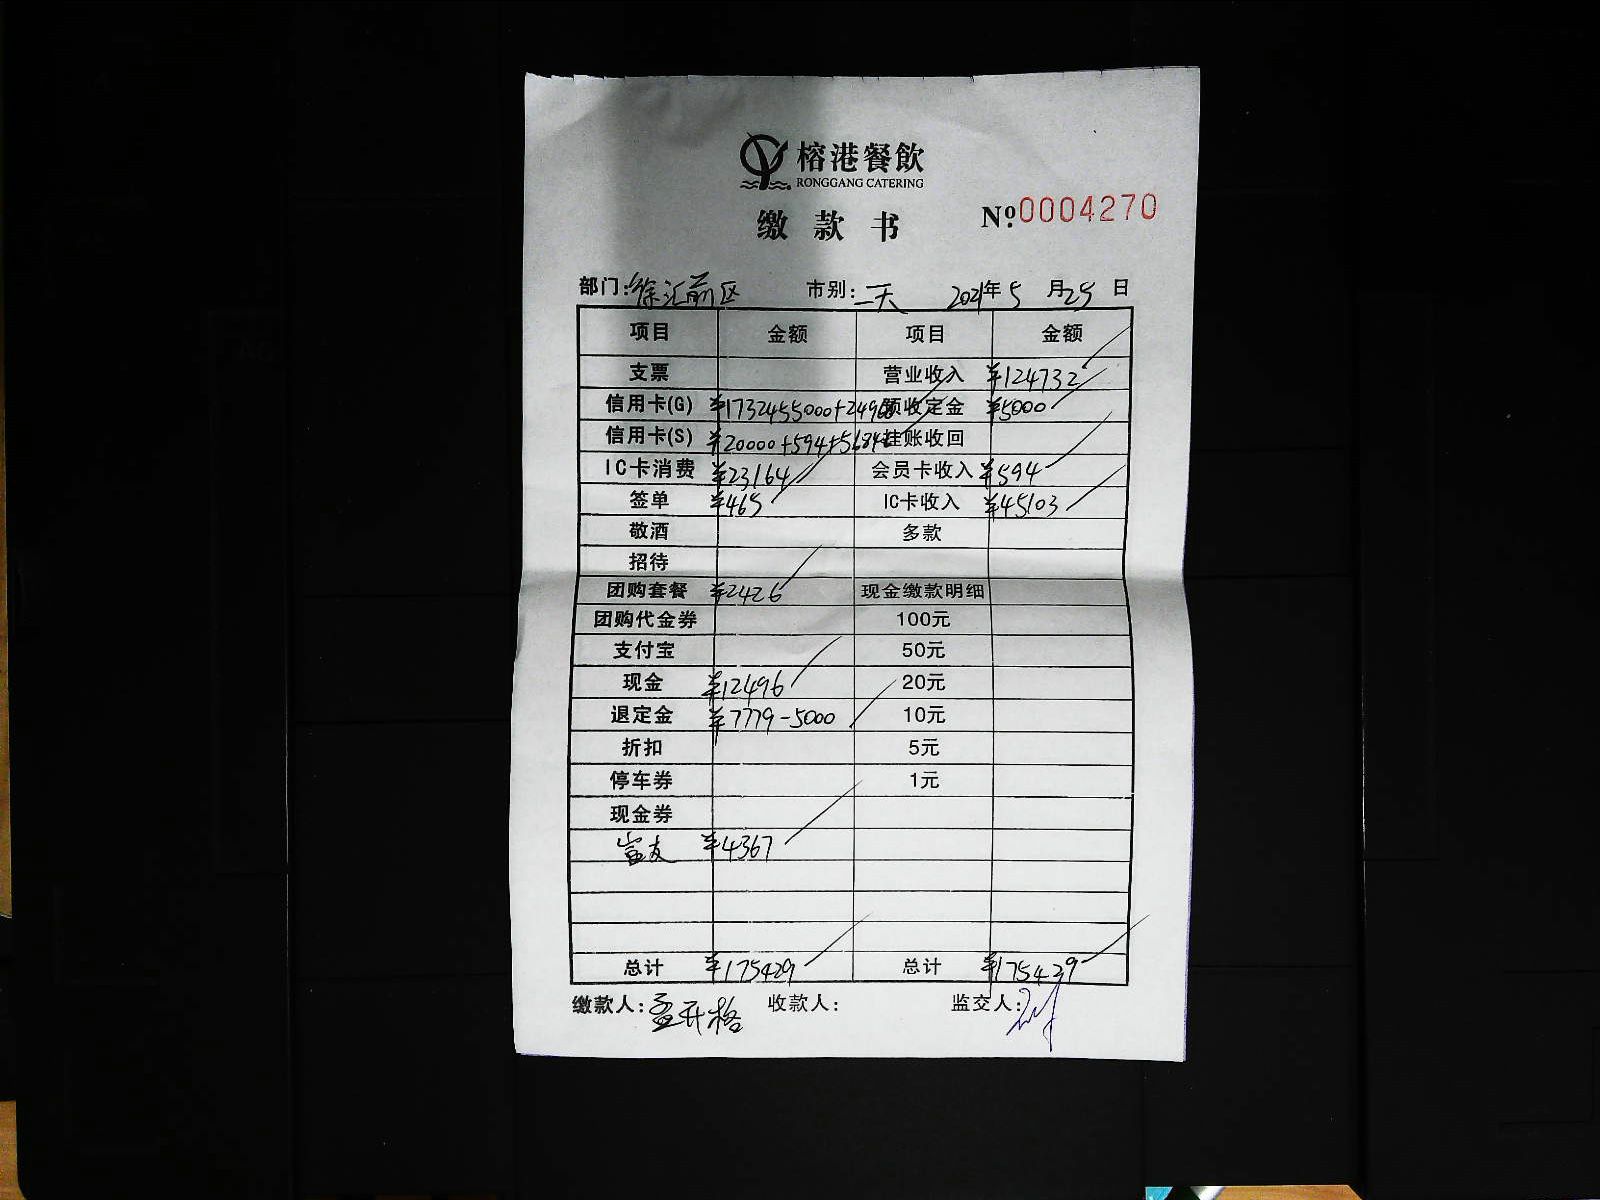 榕港餐飲
RONGGANG CATERING
缴款书 №0004270
部门:徐汇前区 市别:天 2021年5月25日
项目 金额 项目 金额
支票 营业收入 ¥124732
信用卡(G) ¥1732455000+2496 预收定金 ¥5000
信用卡(S) ¥20000+594+5684 挂账收回
IC卡消费 ¥23164 会员卡收入 ¥594
签单 ¥465 IC卡收入 ¥45103
敬酒 多款
招待
团购套餐 ¥2426 现金缴款明细
团购代金券 100元
支付宝 50元
现金 ¥12496 20元
退定金 ¥7779-5000 10元
折扣 5元
停车券 1元
现金券
富友 ¥4367
总计 ¥175429 总计 ¥175429
缴款人:孟开格 收款人: 监交人: